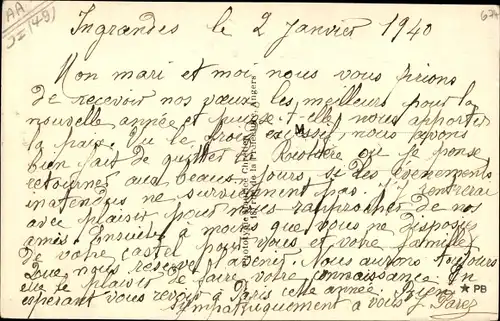 AA
II (49)
67
Ingrandes le 2 Janvier 1940
Mon mari et moi nous vous prions
de recevoir nos vœux les meilleurs pour la
nouvelle année et puisse-t-elle nous apporter
la paix. Vu le froid excessif, nous avons
bien fait de quitter la où je pense
retourner aux beaux jours, si des évènements
inattendus ne surviennent pas. J'y rentrerai
avec plaisir pour nous rapprocher de nos
amis. Ensuite à moins que vous ne disposiez
de votre castel pour vous et votre famille
nous à venir. Nous aurons toujours
le plaisir de faire votre connaissance. En
espérant vous revoir à Paris cette année. Bien
sympathiquement à vous
M
PB